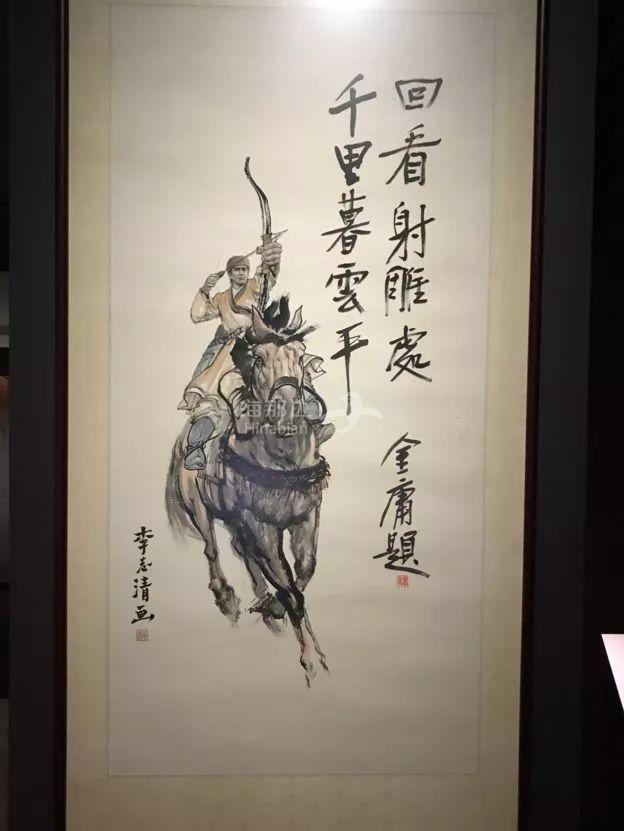 回看射雕處
千里暮雲平
金庸題
李志清画
海那边
Hinabian